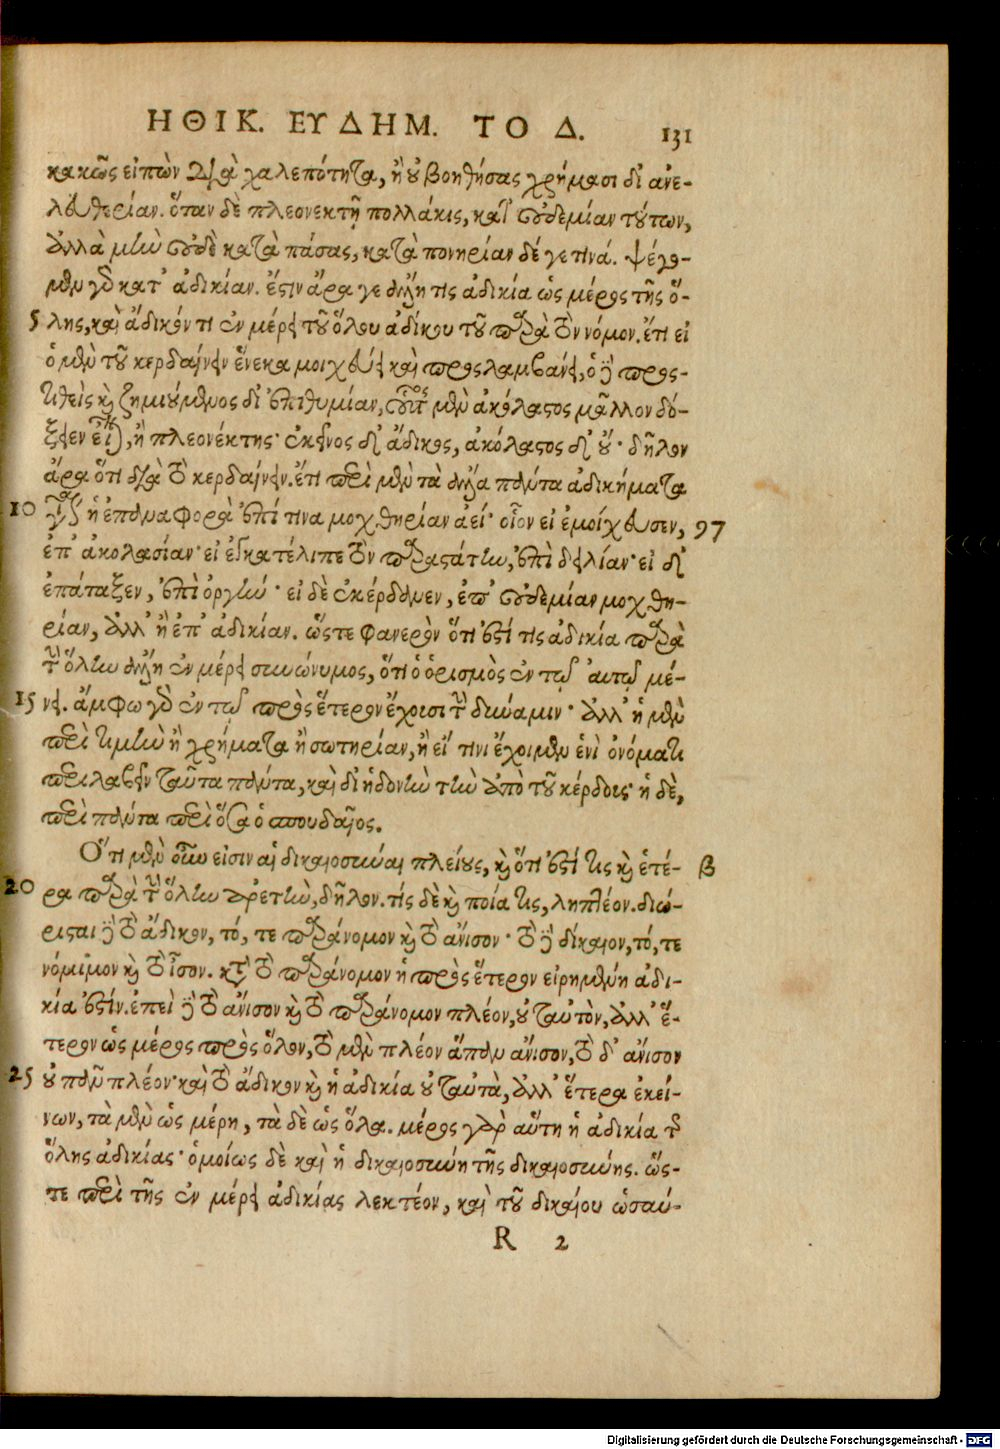 ΗΘΙΚ. ΕΥΔΗΜ. ΤΟ Δ. 131
κακῶς εἰπὼν διὰ χαλεπότητα, ἢ οὐ βοηθήσας χρήμασι δι' ἀνε-
λευθερίαν. ὅταν δὲ πλεονεκτῇ πολλάκις, κατ' οὐδεμίαν τούτων,
ἀλλὰ μὴν οὐδὲ κατὰ πάσας, κατὰ πονηρίαν δέ γε τινά. ψέγο-
μεν γὰρ κατ' ἀδικίαν. ἔστιν ἄρα γε ἄλλη τις ἀδικία ὡς μέρος τῆς ὅ-
5 λης, καὶ ἄδικόν τι ἐν μέρει τοῦ ὅλου ἀδίκου τοῦ παρὰ τὸν νόμον. ἔτι εἰ
ὁ μὲν τοῦ κερδαίνειν ἕνεκα μοιχεύει καὶ προςλαμβάνει, ὁ δὲ προς-
τιθεὶς καὶ ζημιούμενος δι' ἐπιθυμίαν, οὗτος μὲν ἀκόλαστος μᾶλλον δό-
ξειεν εἶναι, ἢ πλεονέκτης· ἐκεῖνος δ' ἄδικος, ἀκόλαστος δ' οὔ· δῆλον
ἄρα ὅτι διὰ τὸ κερδαίνειν. ἔτι περὶ μὲν τὰ ἄλλα πάντα ἀδικήματα
10 γίνεται ἡ ἐπαναφορὰ ἐπί τινα μοχθηρίαν ἀεί· οἷον εἰ ἐμοίχευσεν, 97
ἐπ' ἀκολασίαν· εἰ ἐγκατέλιπε τὸν παραστάτην, ἐπὶ δειλίαν· εἰ δ'
ἐπάταξεν, ἐπὶ ὀργήν· εἰ δὲ ἐκέρδανεν, ἐπ' οὐδεμίαν μοχθη-
ρίαν, ἀλλ' ἢ ἐπ' ἀδικίαν. ὥςτε φανερὸν ὅτι ἐστί τις ἀδικία παρὰ
τὴν ὅλην ἄλλη ἐν μέρει συνώνυμος, ὅτι ὁ ὁρισμὸς ἐν τῷ αὐτῷ γέ-
15 νει. ἄμφω γὰρ ἐν τῷ πρὸς ἕτερον ἔχουσι τὴν δύναμιν· ἀλλ' ἡ μὲν
περὶ τιμὴν ἢ χρήματα ἢ σωτηρίαν, ἢ εἴ τινι ἔχοιμεν ἑνὶ ὀνόματι
περιλαβεῖν ταῦτα πάντα, καὶ δι' ἡδονὴν τὴν ἀπὸ τοῦ κέρδους· ἡ δὲ,
περὶ πάντα περὶ ὅσα ὁ σπουδαῖος.
Ὅτι μὲν οὖν εἰσιν αἱ δικαιοσύναι πλείους, καὶ ὅτι ἐστί τις καὶ ἑτέ- β
20 ρα παρὰ τὴν ὅλην ἀρετὴν, δῆλον. τίς δὲ καὶ ποία τις, ληπτέον. διώ-
ρισται δὴ τὸ ἄδικον, τό, τε παράνομον καὶ τὸ ἄνισον· τὸ δὲ δίκαιον, τό, τε
νόμιμον καὶ τὸ ἶσον. κατὰ τὸ παράνομον ἡ πρὸς ἕτερον εἰρημένη ἀδι-
κία ἐστίν. ἐπεὶ δὲ τὸ ἄνισον καὶ τὸ παράνομον πλέον, οὐ ταὐτὸν, ἀλλ' ἕ-
τερον ὡς μέρος πρὸς ὅλον, τὸ μὲν πλέον ἅπαν ἄνισον, τὸ δ' ἄνισον
25 οὐ πᾶν πλέον· καὶ τὸ ἄδικον καὶ ἡ ἀδικία οὐ ταὐτὰ, ἀλλ' ἕτερα ἐκεί-
νων, τὰ μὲν ὡς μέρη, τὰ δὲ ὡς ὅλα. μέρος γὰρ αὕτη ἡ ἀδικία τῆς
ὅλης ἀδικίας· ὁμοίως δὲ καὶ ἡ δικαιοσύνη τῆς δικαιοσύνης. ὥς-
τε περὶ τῆς ἐν μέρει ἀδικίας λεκτέον, καὶ τοῦ δικαίου ὡσαύ-
R 2
Digitalisierung gefördert durch die Deutsche Forschungsgemeinschaft - DFG